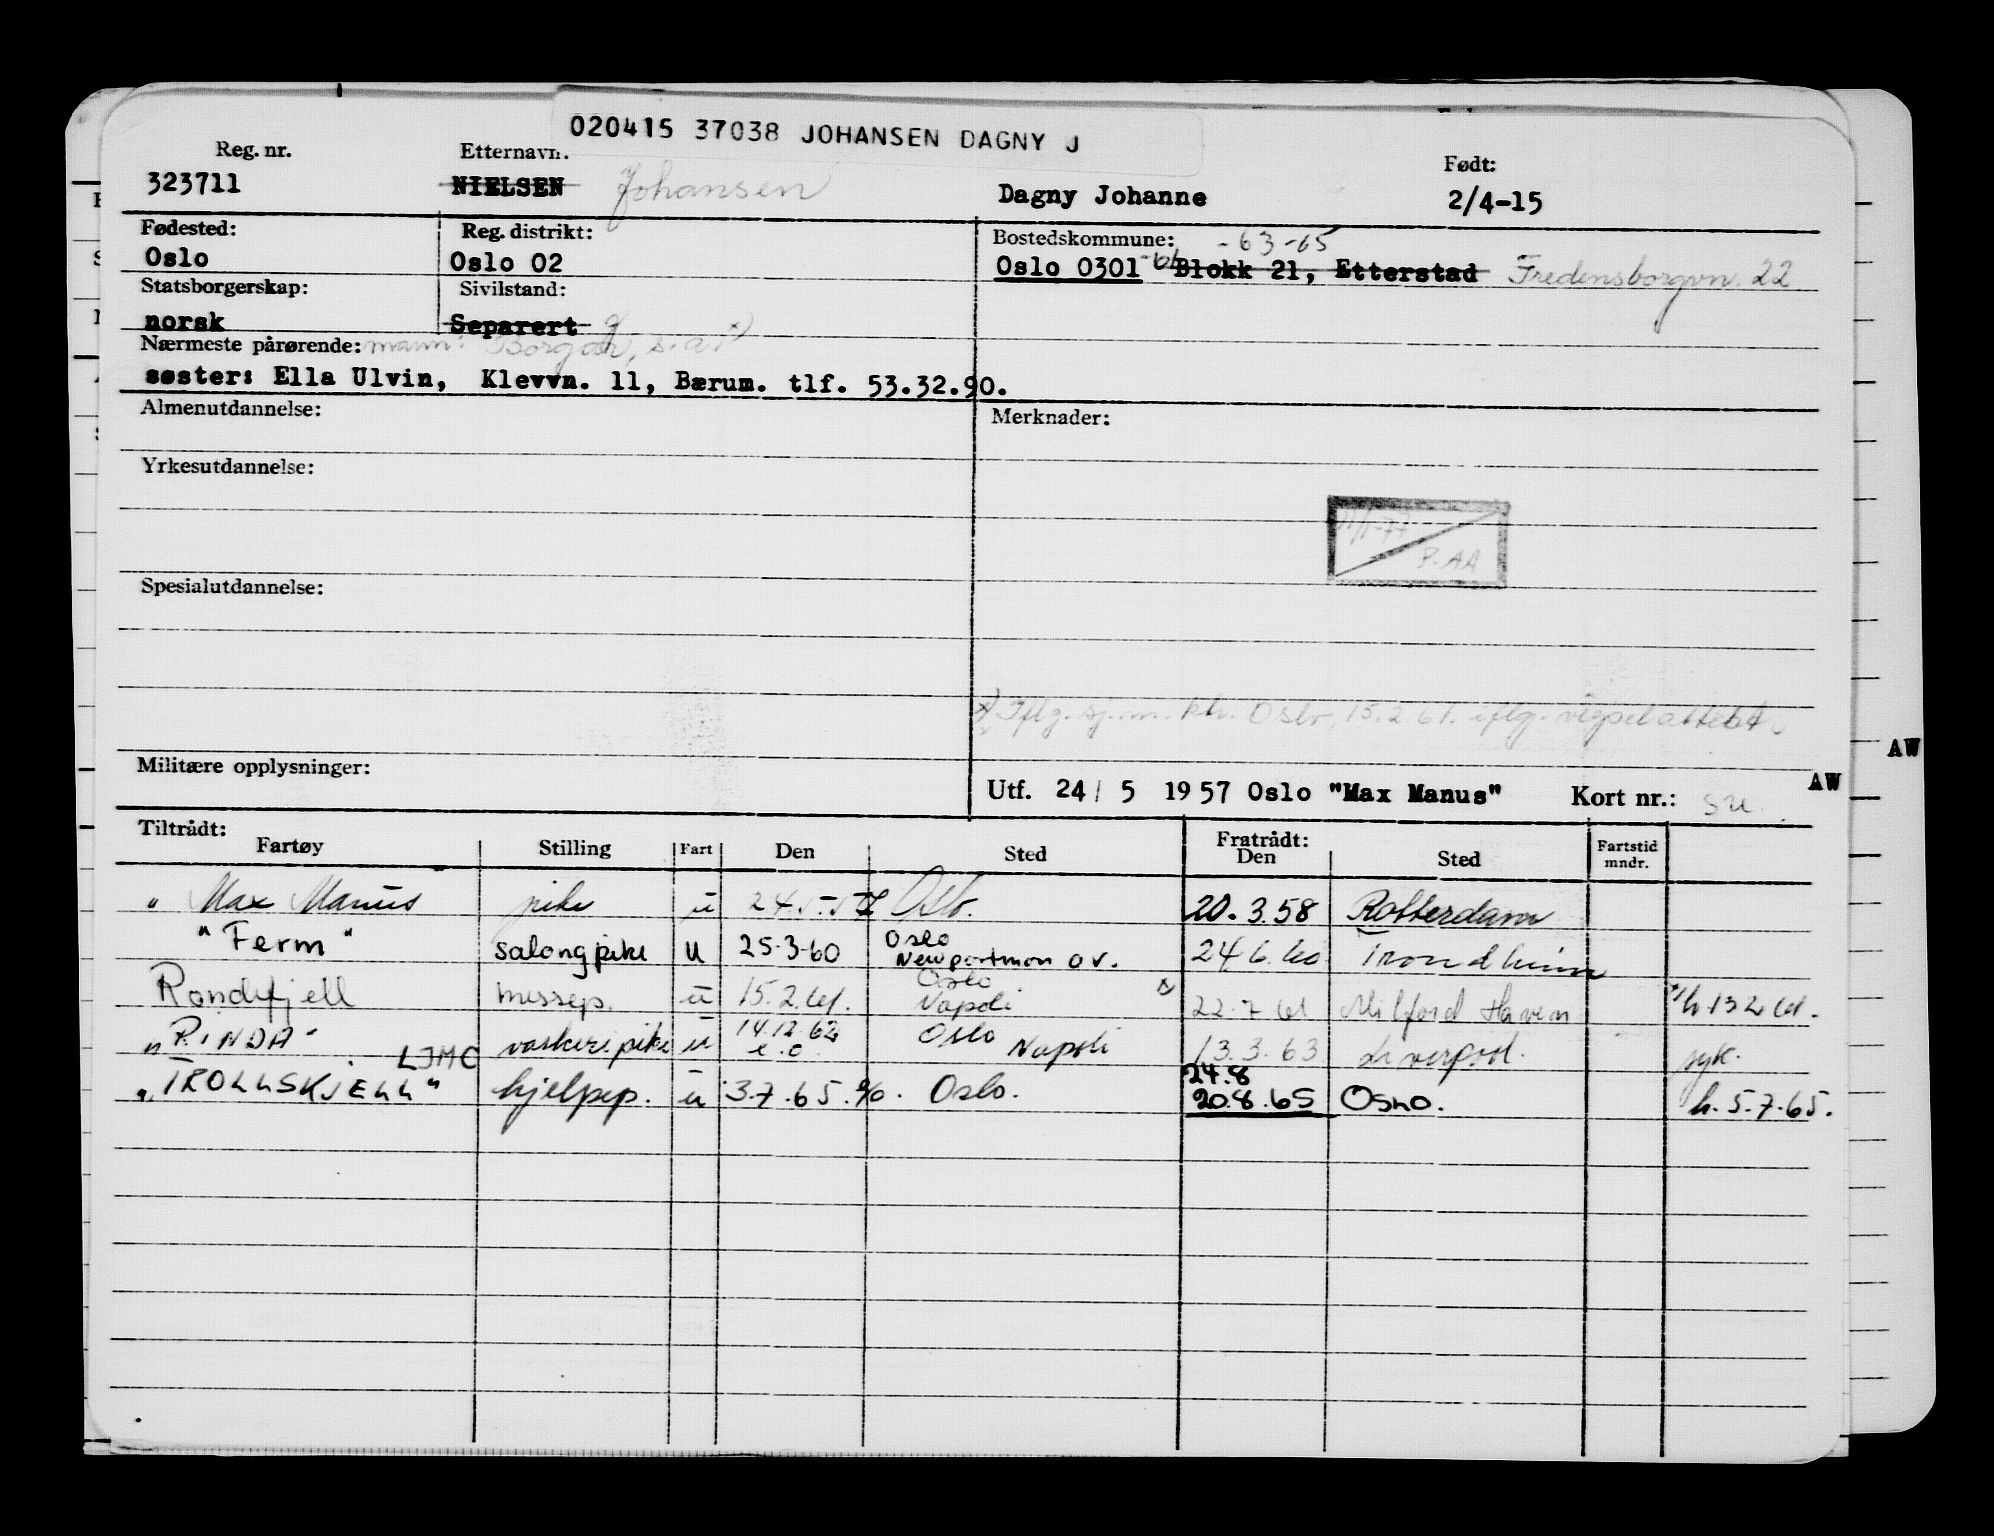 020415 37038 JOHANSEN DAGNY J
Reg. nr. Etternavn. Født:
323711 NIELSEN Johansen Dagny Johanne 2/4-15
Fødested: Reg. distrikt: Bostedskommune: -63-65
Oslo Oslo 02 Oslo 0301 Blokk 21, Etterstad Fredensborgvn. 22
Statsborgerskap: Sivilstand:
norsk Separert g x)
Nærmeste pårørende: mann: Borgar, s.a.
søster: Ella Ulvin, Klevvn. 11, Bærum. tlf. 53.32.90.
Almenutdannelse: Merknader:
Yrkesutdannelse:
P. AA
Spesialutdannelse:
x) Iflg. sj.m.ktr. Oslo, 15.2.61. iflg. vigselattest.
AW
Militære opplysninger: Utf. 24/ 5 1957 Oslo "Max Manus" Kort nr.: AW
Tiltrådt: Fratrådt:
Fartøy Stilling Fart Den Sted Den Sted Fartstid mndr.
" Max Manus pike u 24.5.57 Oslo. 20.3.58 Rotterdam
"Ferm" salongpike u 25-3-60 Oslo Newportmon ov. 24.6.60 Trondheim
Rondefjell messep. u 15.2.61. Oslo Napoli x 22.7.61 Milford Haven x) h 13 2 61.
"RINDA" LJMC vaskeripike u 14.12.62 e.o. Oslo Napoli 13.3.63 Liverpool. syk.
"TROLLSKJELL" hjelpep. u 3.7.65. Oslo. 24.8 20.8.65 Oslo. h. 5.7.65.